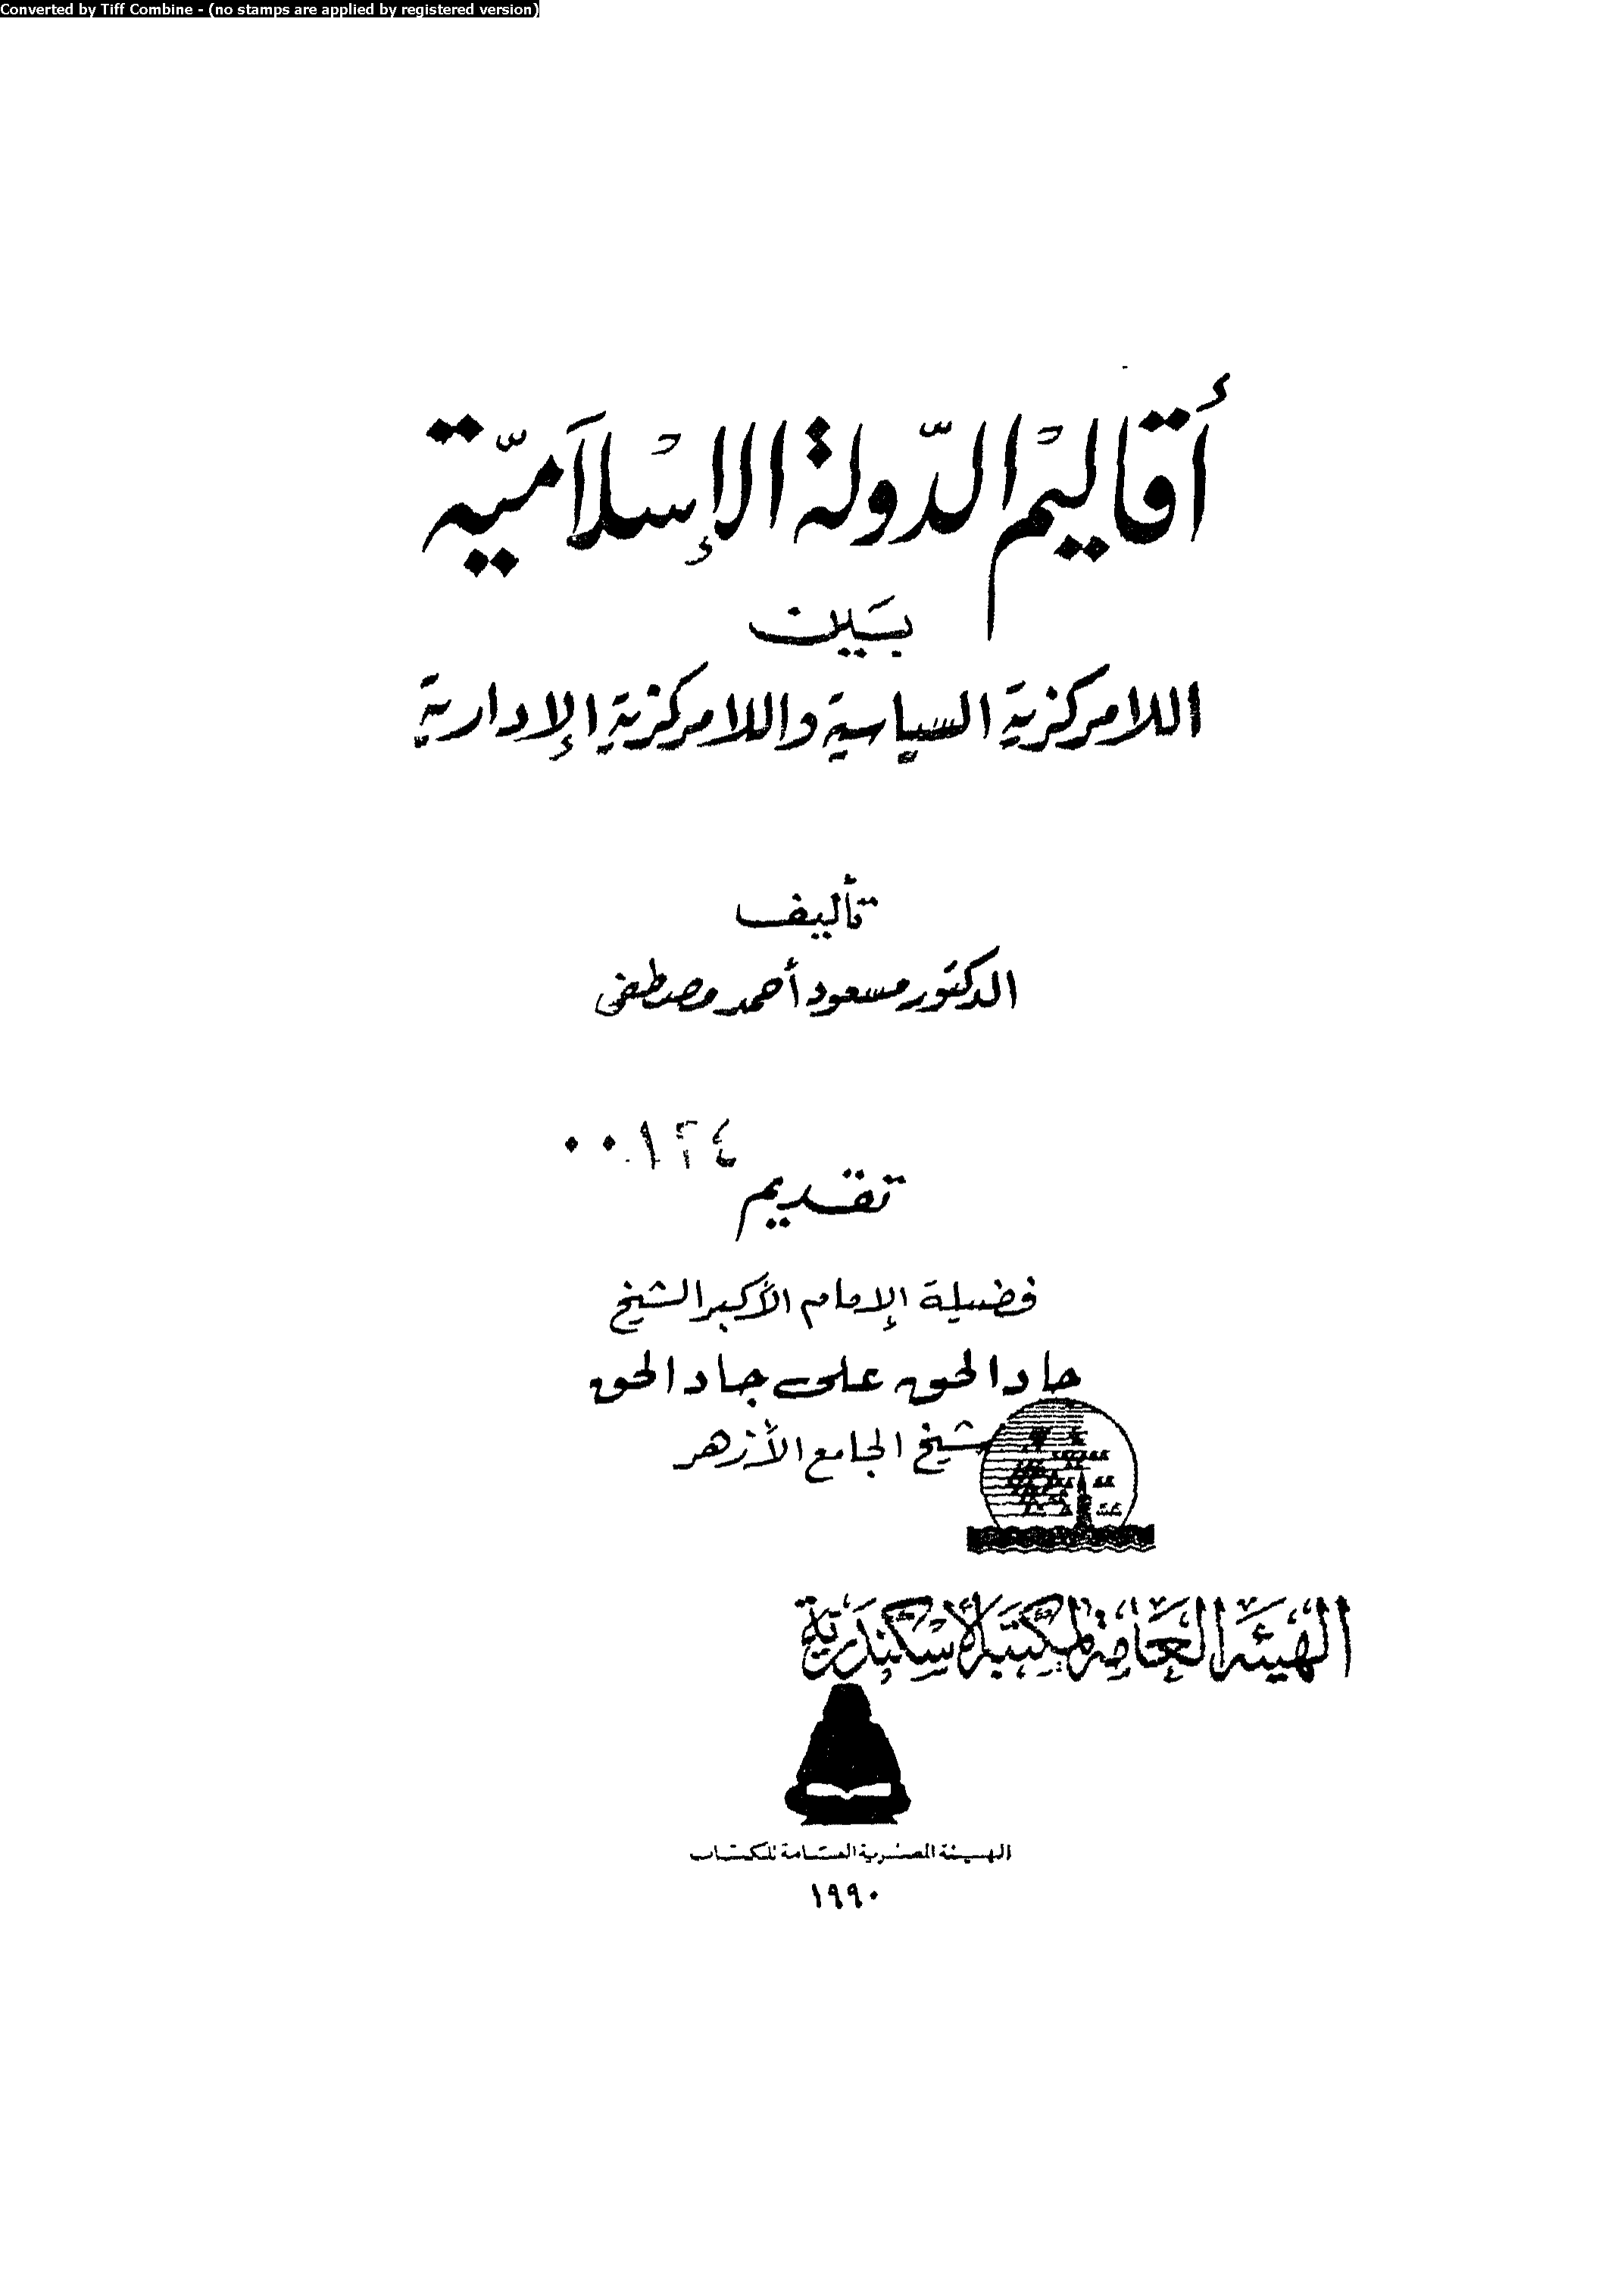 Converted by Tiff Combine - (no stamps are applied by registered version)
أقاليم الدّولة الإسْلَاميّة
بَين
اللامركزية السياسية واللامركزية الإدارية
تأليف
الدكتور مسعود أحمد مصطفى
تقديم
فضيلة الإمام الأكبر الشيخ
جاد الحق على جاد الحق
شيخ الجامع الأزهر
الهيئة العامة لمكتبة الأسكندرية
الهيئة المصرية العامة للكتاب
١٩٩٠